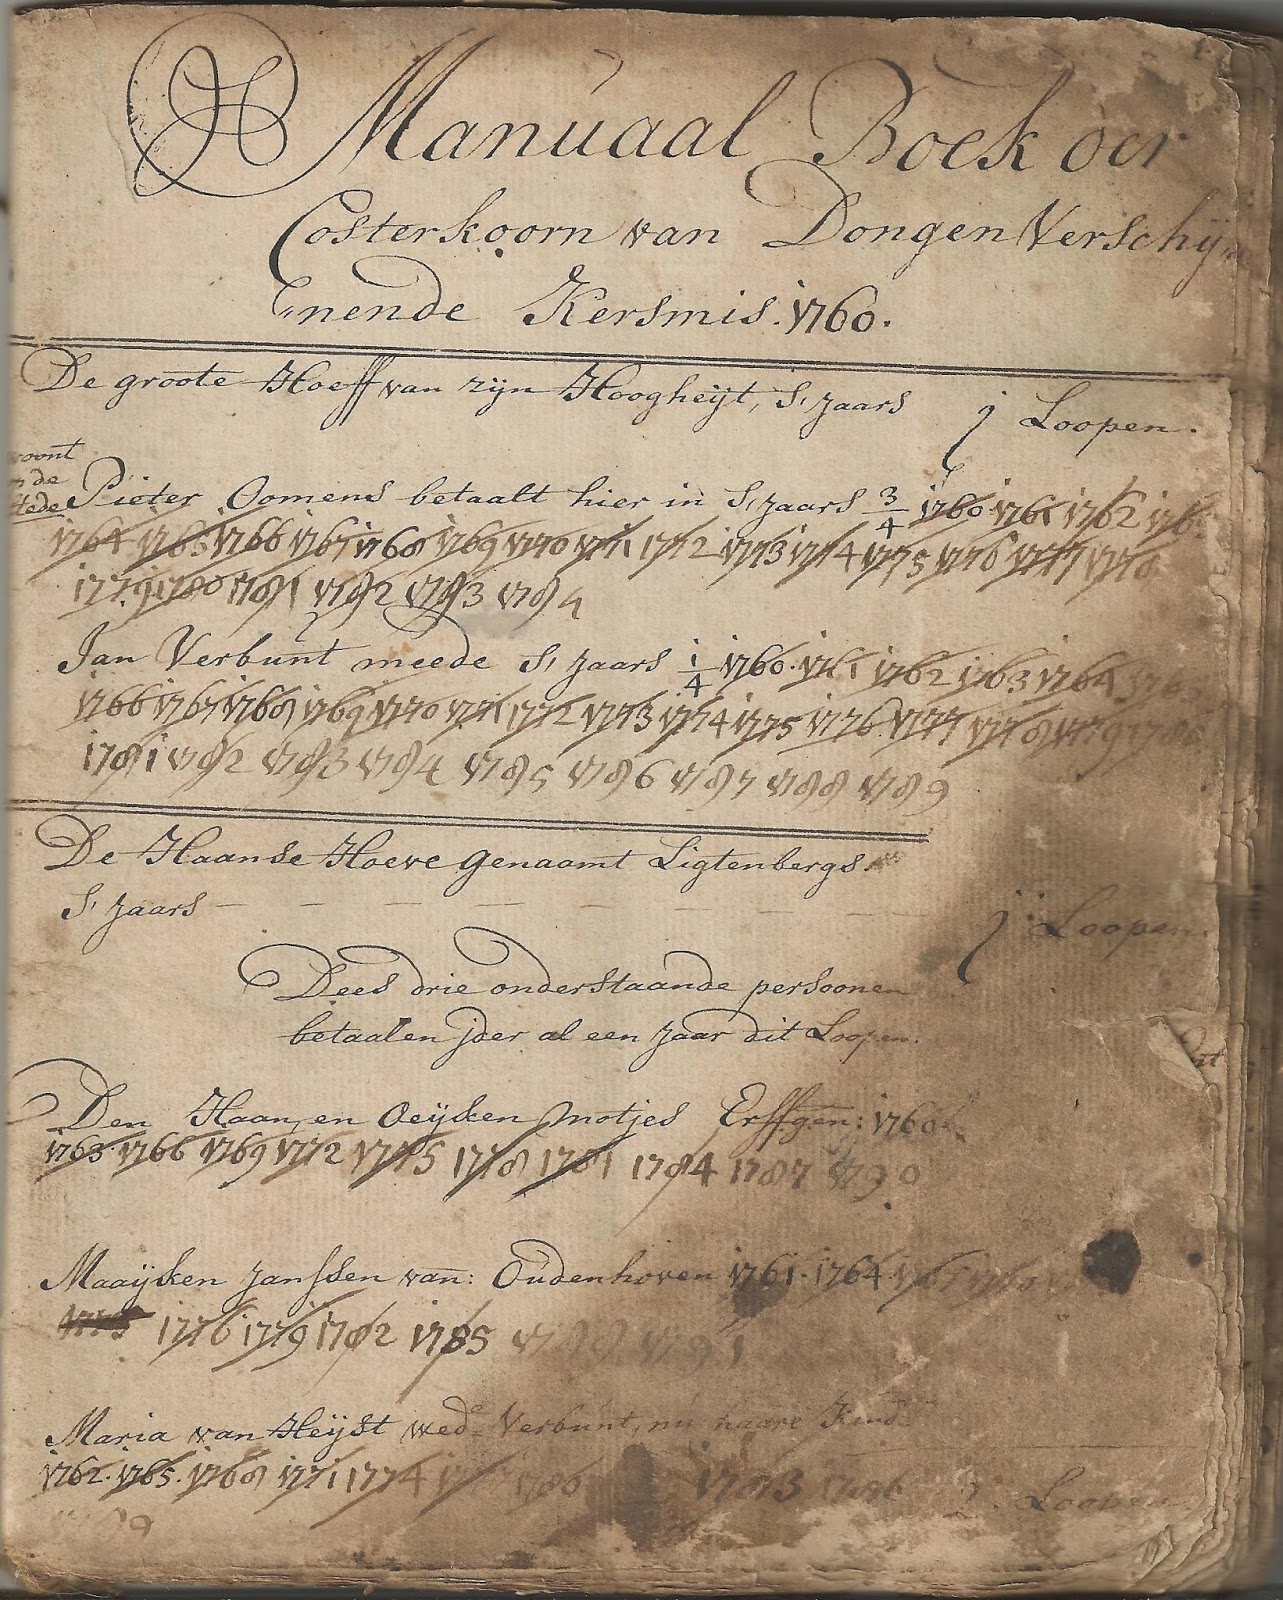 Manuaal Boek oer
Costerkoorn van Dongen Verschij
nende Kersmis. 1760.
De groote Hoeff van zijn Hoogheijt, S' Jaars j Loopen.
woont
de
stede
Pieter Oomens betaalt hier in S' Jaars 3/4 1760 1761 1762 176
1764 1765 1766 1767 1768 1769 1770 1771 1772 1773 1774 1775 1776 1777 1778
1779 1780 1781 1782 1783 1784
Jan Verbunt meede S' Jaars 1/4 1760. 1761 1762 1763 1764 176
1766 1767 1768 1769 1770 1771 1772 1773 1774 1775 1776 1777 1778 1779 1780
1781 1782 1783 1784 1785 1786 1787 1788 1789
De Haanse Hoeve genaamt Ligtenbergs.
S' Jaars j Loopen.
Dees drie onderstaande persoonen
betaalen jder al een Jaar dit Loopen.
Den Haan, en Oeijken Motjes Erffgen: 1760
1763. 1766 1769 1772 1775 1778 1781 1784 1787 1790
Maaijken Janssen van: Oudenhoven 1761. 1764
1773 1776 1779 1782 1785
Maria van Heijst wede Verbunt, nu haare Kind
1762. 1765. 1768 1771 1774 1780 1783 1786 Loopen
1789